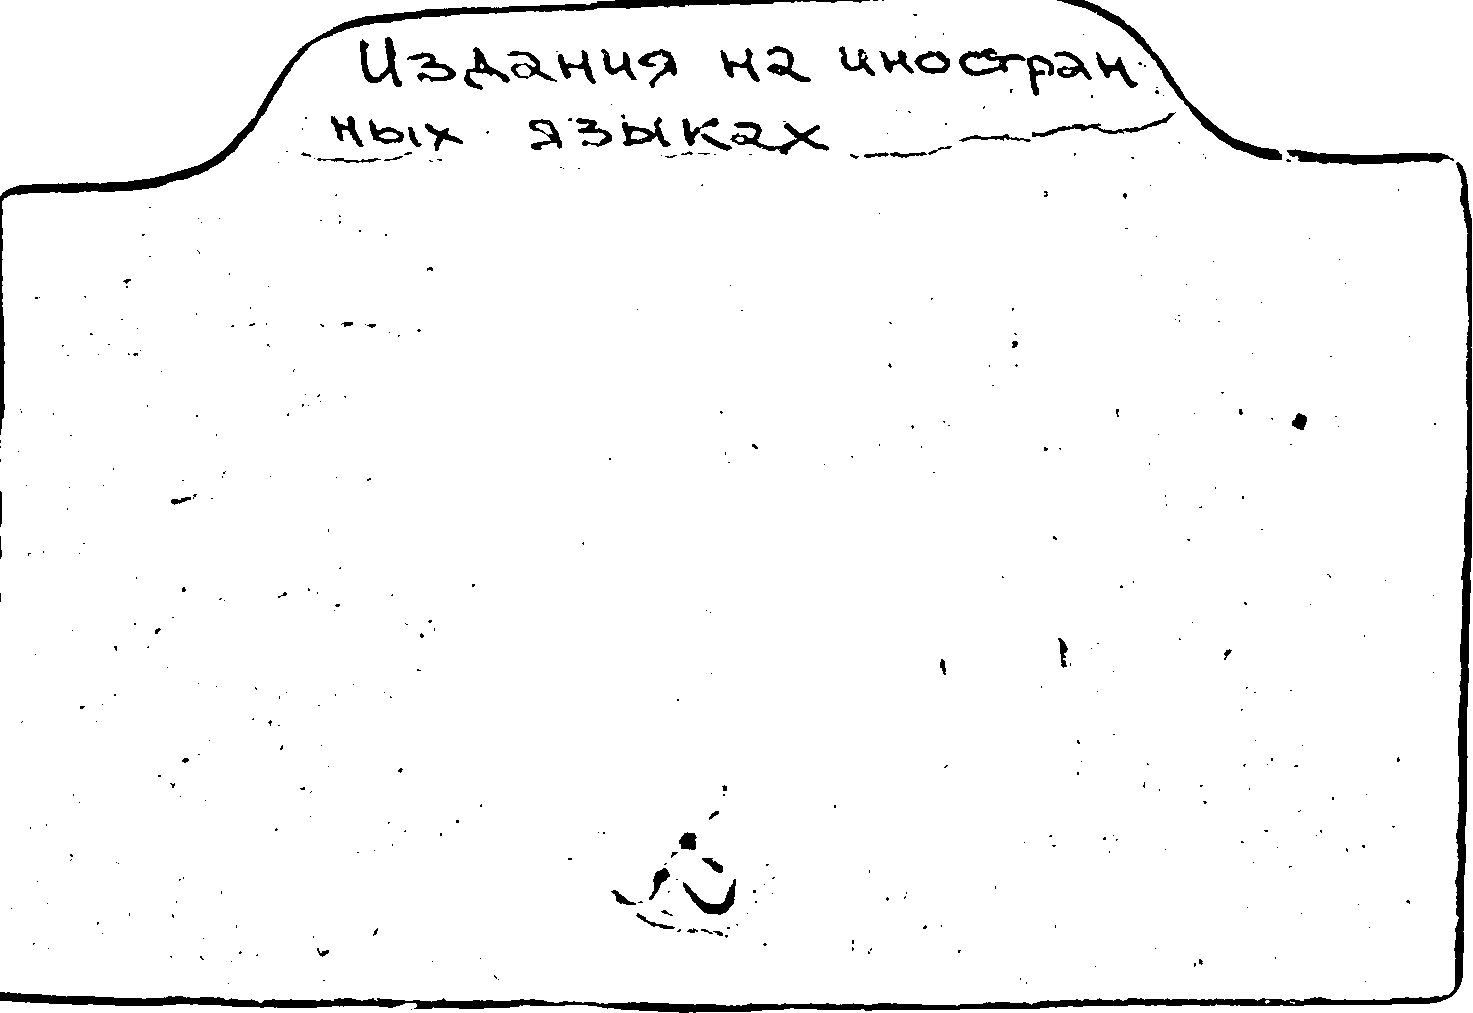 Издания на иностран
ных языках